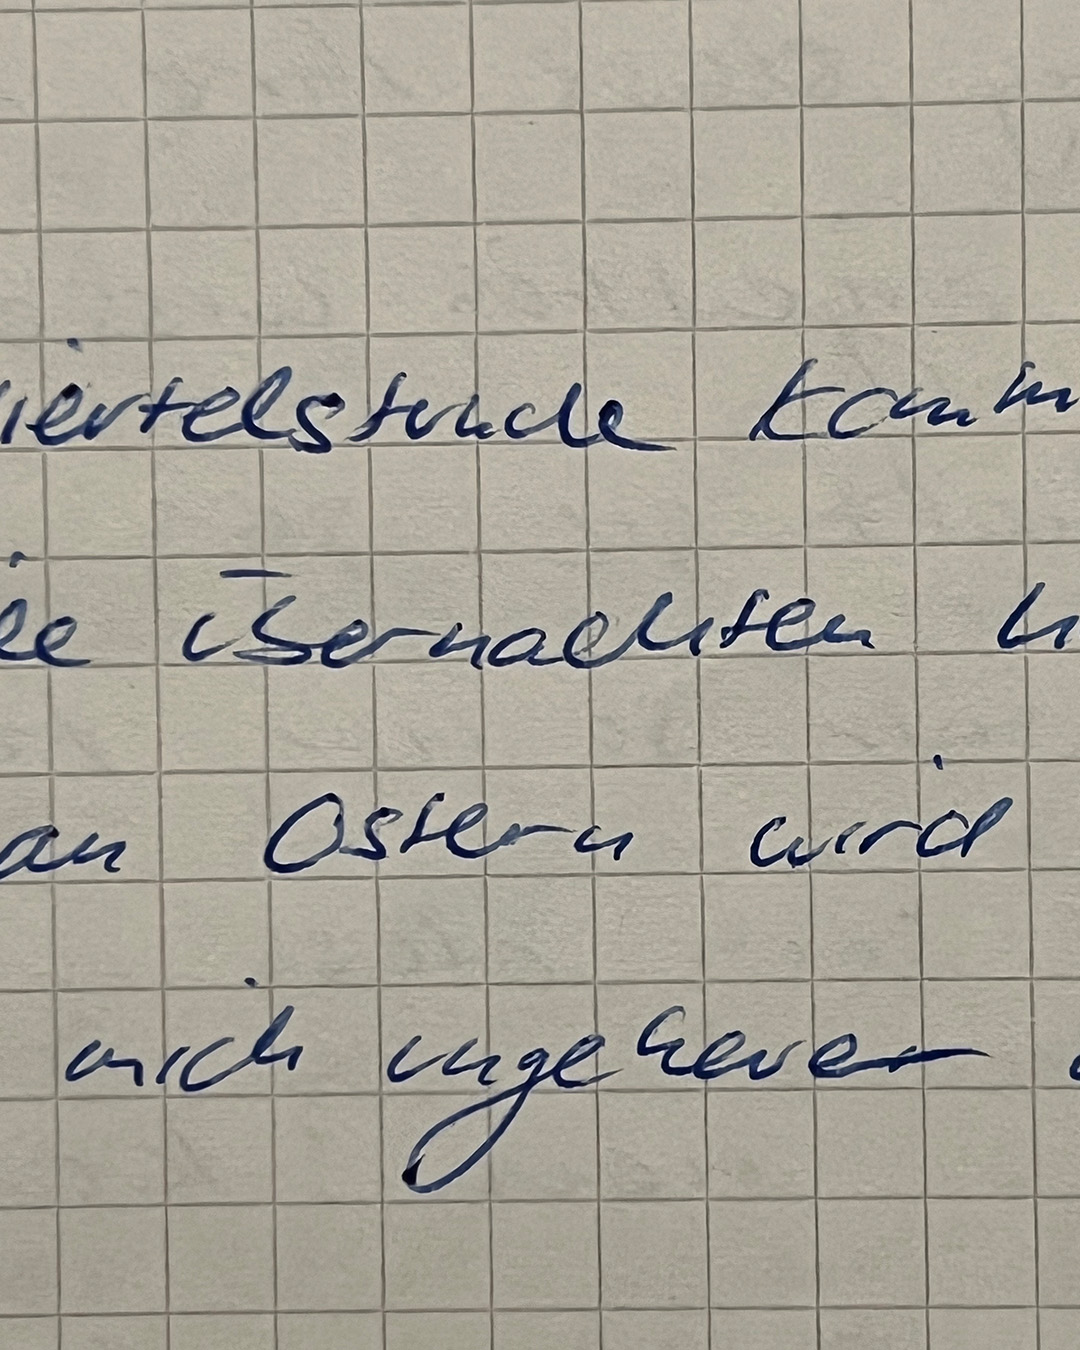 viertelstunde komm
übernachten
an Ostern wird
mich ungeheuer